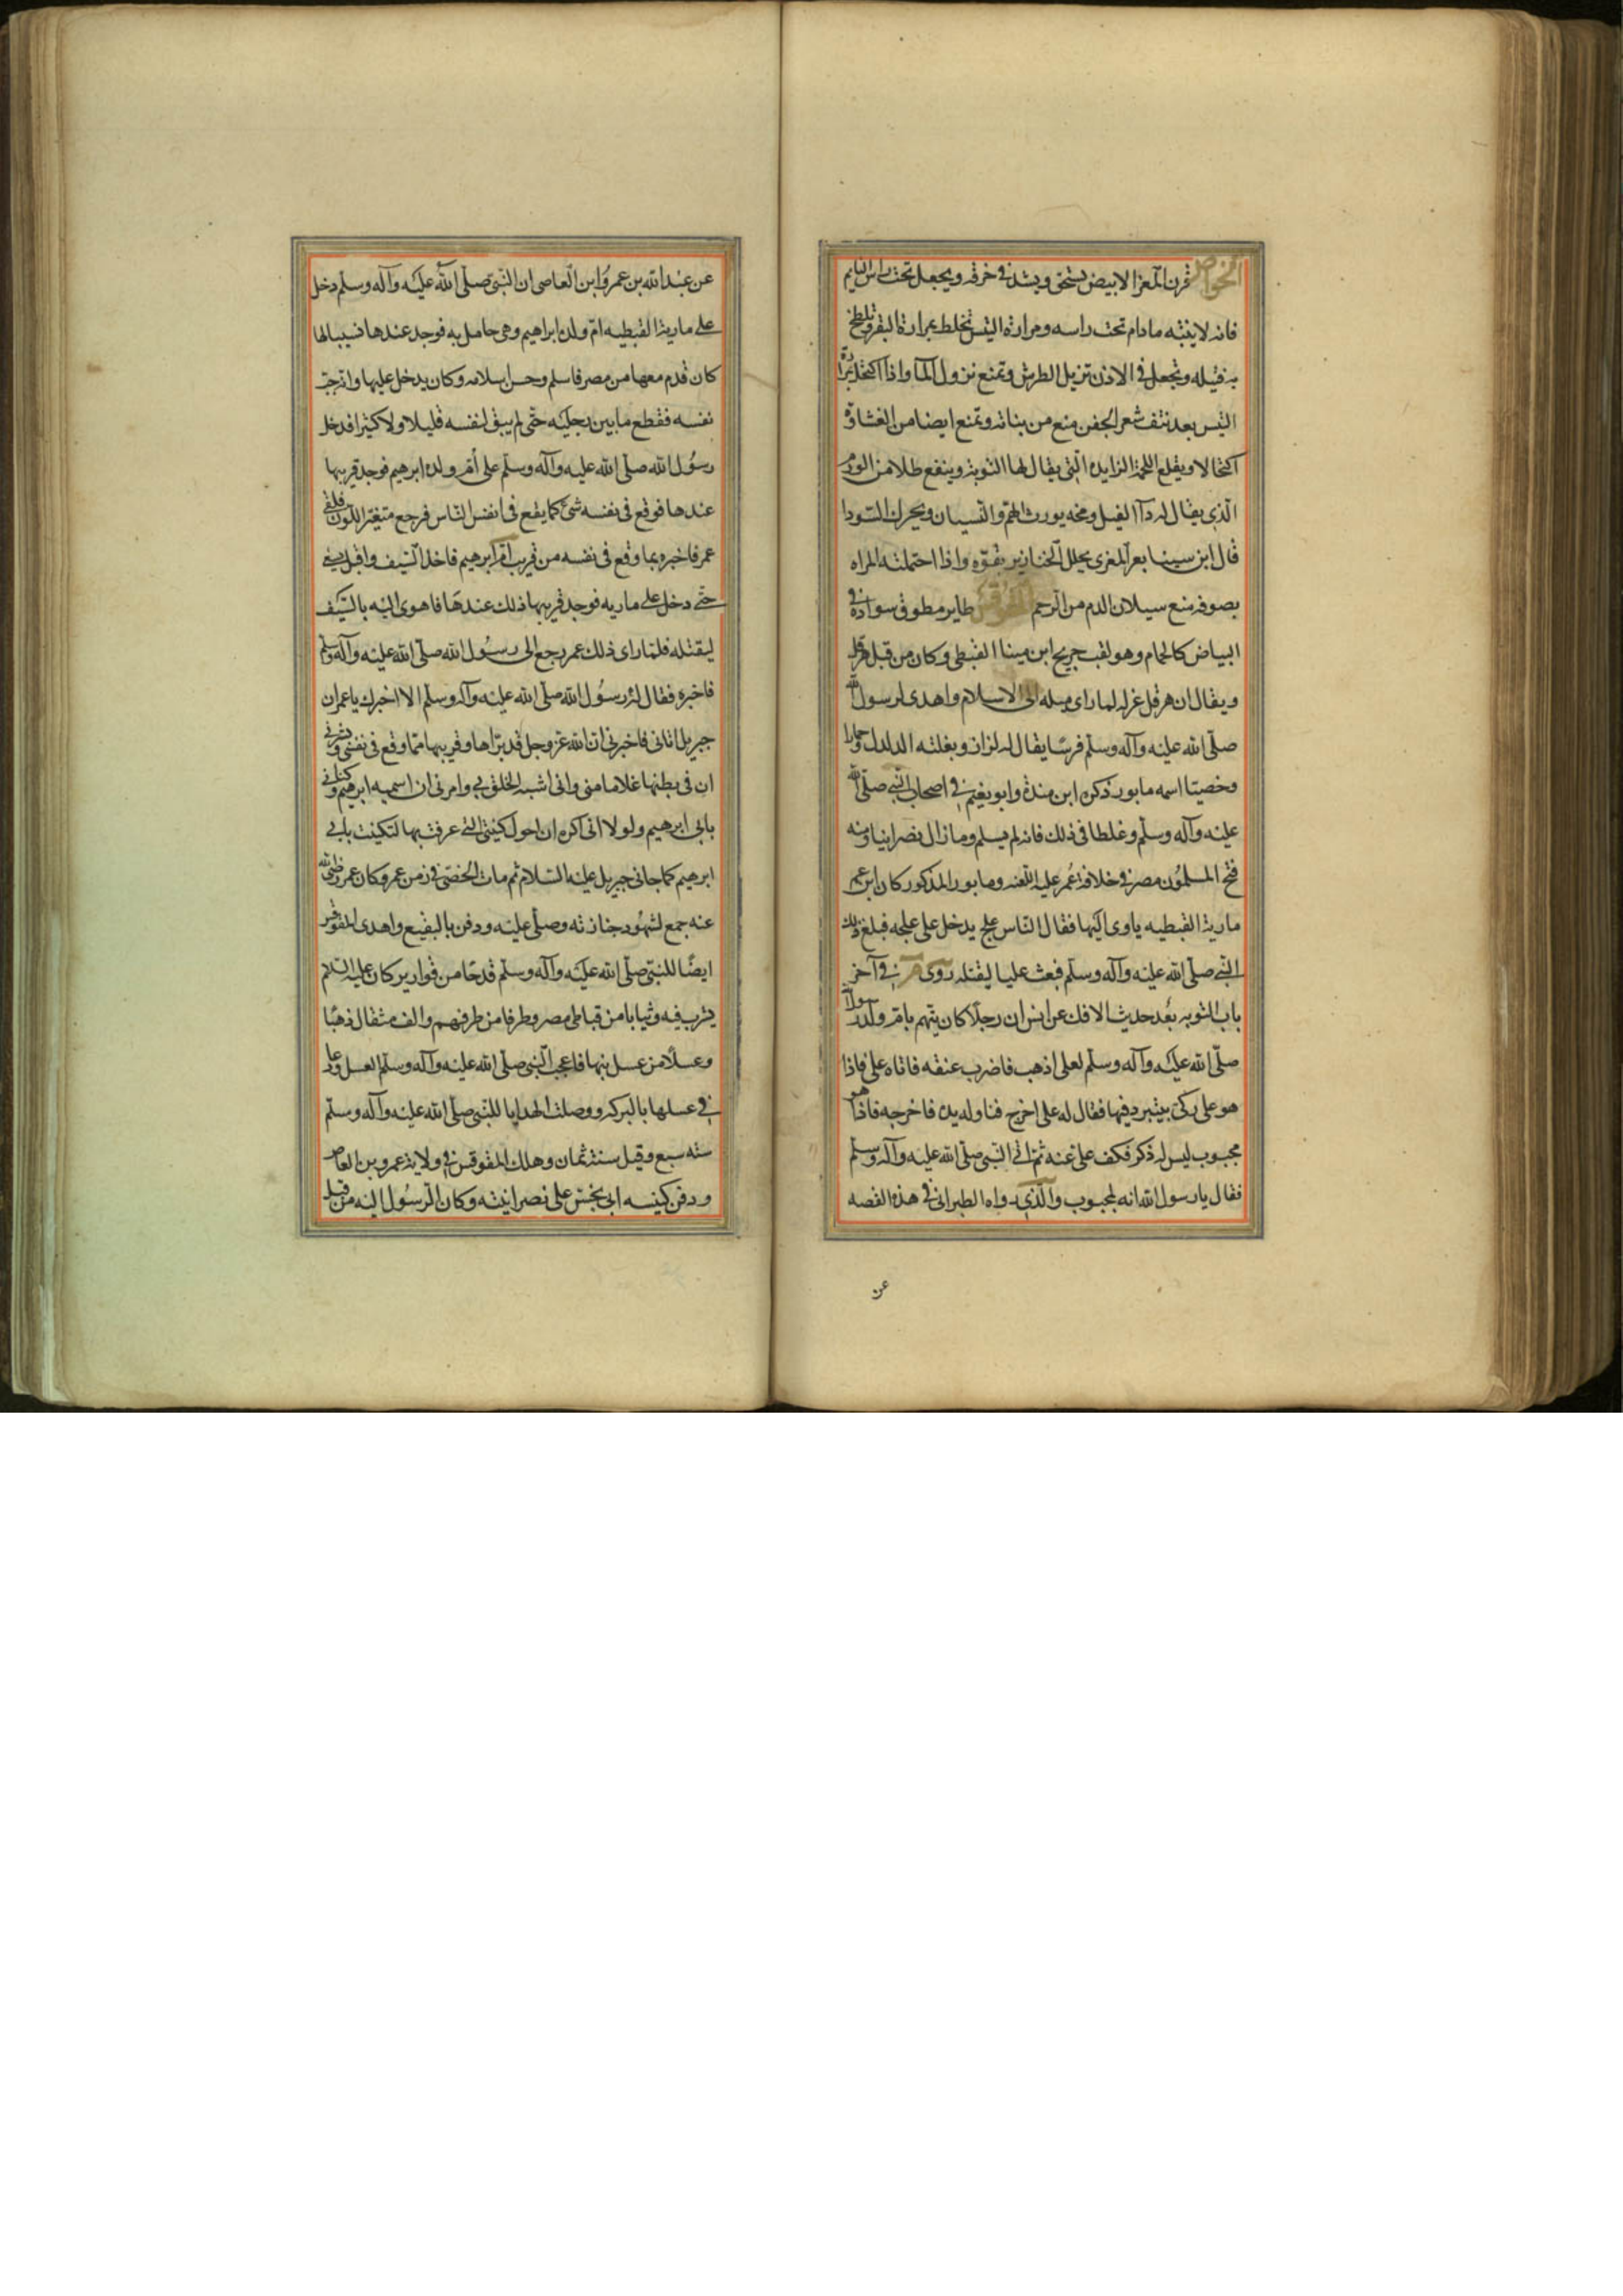 الخواص قرن المعز الابيض يسحق ويشد فى خرقه ويجعل تحت راس النايم
فانه لا ينتبه مادام تحت راسه ومرارة التيس تخلط بمرارة البقر وتلطخ
به فتيله وتجعل فى الاذن تزيل الطرش وتمنع نزول المآ واذا اكتحل بمرارة
التيس بعد نتف شعر الجفن منع من بناته وتمنع ايضا من الغشاوة
اكتحالا ويقلع اللحمة الزايده التى يقال لها التوتة وينفع طلا من الورم
الذى يقال له دآ الفيل ومخه يورث الهم والنسيان ويحرك السودا
قال ابن سينا بعر المعزى يحلل الخنازير بقوة واذا احتملته المراه
بصوفه منع سيلان الدم من الرحم المقوقس طاير مطوق سواده فى
البياض كالحمام وهو لقب جريج ابن مينا القبطى وكان من قبل هرقل
ويقال ان هرقل عزله لما راى ميله الى الاسلام واهدى لرسول الله
صلى الله عليه وآله وسلم فرسا يقال له لزاز وبغلته الدلدل وحمارا
وخصيا اسمه مابور ذكره ابن مندة وابو نعيم فى اصحاب النبى صلى الله
عليه وآله وسلم وغلطا فى ذلك فانه لم يسلم ومازال نصرانيا ومنه
فتح المسلمون مصر فى خلافة عمر عليه اللعنه ومابور المذكور كان ابن عم
مارية القبطيه ياوى اليها فقال الناس علج يدخل على علجه فبلغ ذلك
النبى صلى الله عليه وآله وسلم فبعث عليا ليقتله روى فى آخر
باب التوبه بعد حديث الافك عن انس ان رجلا كان يتهم بام ولد رسول الله
صلى الله عليه وآله وسلم لعلى اذهب فاضرب عنقه فاتاه على فاذا
هو على ركى يتبرد فيها فقال له على اخرج فناوله يده فاخرجه فاذا هو
مجبوب ليس له ذكر فكف على عنه ثم اتى النبى صلى الله عليه وآله وسلم
فقال يا رسول الله انه لمجبوب والذى رواه الطبرانى فى هذه القصه
عن
عن عبد الله بن عمرو ابن العاصى ان النبى صلى الله عليه وآله وسلم دخل
على مارية القبطيه ام ولده ابراهيم وهى حامل به فوجد عندها نسيبا لها
كان قدم معها من مصر فاسلم وحسن اسلامه وكان يدخل عليها وانه جب
نفسه فقطع ما بين رجليه حتى لم يبق لنفسه قليلا ولا كثيرا فدخل
رسول الله صلى الله عليه وآله وسلم على أم ولده ابرهيم فوجد قريبها
عندها فوقع فى نفسه شئ كما يقع فى انفس الناس فرجع متغير اللون فلقى
عمر فاخبره بما وقع فى نفسه من قريب ام ابرهيم فاخذ السيف واقبل يسعى
حتى دخل على ماريه فوجد قريبها ذلك عندها فاهوى اليه بالسيف
ليقتله فلما راى ذلك عمر رجع الى رسول الله صلى الله عليه وآله وسلم
فاخبره فقال له رسول الله صلى الله عليه وآله وسلم الا اخبرك يا عمر ان
جبريل اتانى فاخبرنى ان الله عز وجل قد براها وقريبها مما وقع فى نفسى وبشرنى
ان فى بطنها غلاما منى وانى اشبه الخلق بى وامرنى ان اسميه ابرهيم وكنانى
بابى ابرهيم ولولا انى اكره ان احول كنيتى التى عرفت بها لتكنيت بابى
ابرهيم كما جانى جبريل عليه السلام ثم مات الخصى فى زمن عمر وكان عمر رضى الله
عنه جمع لشهود جنازته وصلى عليه ودفن بالبقيع واهدى المقوقس
ايضا للنبى صلى الله عليه وآله وسلم قدحا من قوارير كان عليه السلام
يشرب فيه وثيابا من قباطى مصر وطرفا من طرفهم والف مثقال ذهبا
وعسلا من عسل بنها فاعجب النبى صلى الله عليه وآله وسلم العسل ودعا
فى عسلها بالبركه ووصلت الهدايا للنبى صلى الله عليه وآله وسلم
سنه سبع وقيل سنة ثمان وهلك المقوقس فى ولاية عمرو بن العاص
ودفن كنيسه ابى يخنس على نصرانيته وكان الرسول اليه من قبل